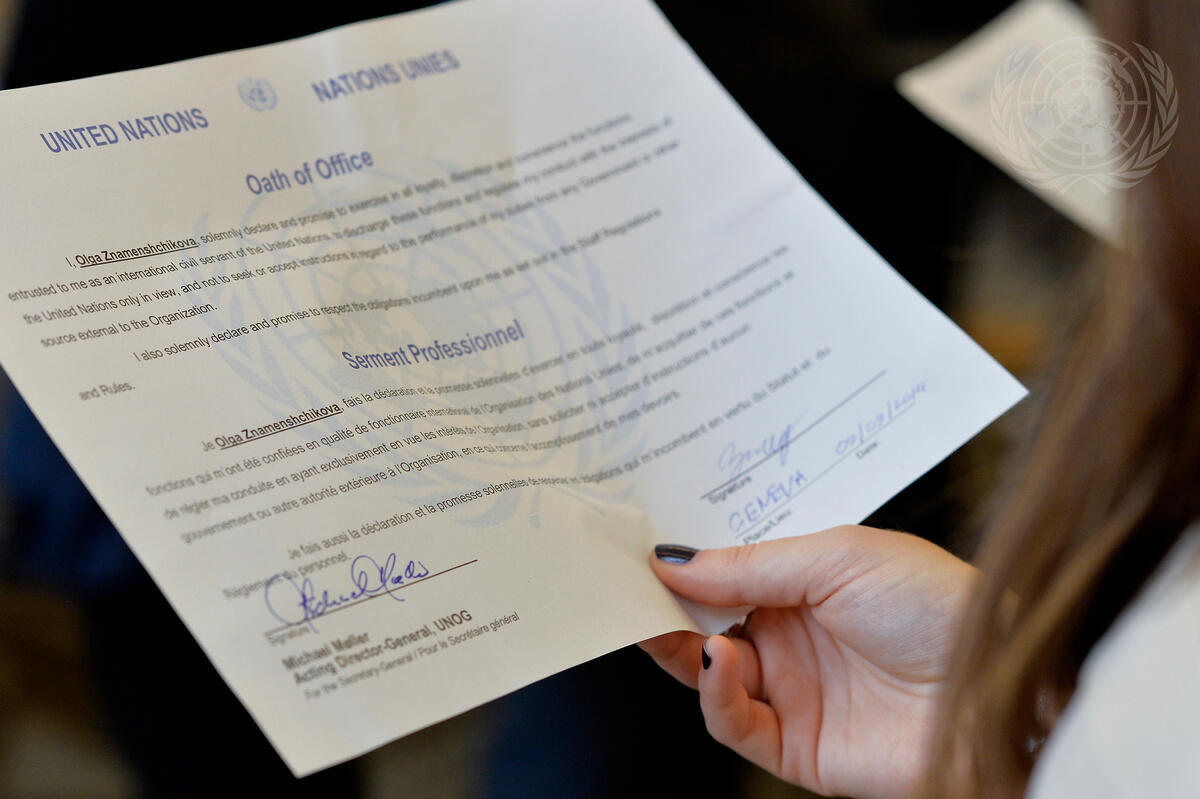 UNITED NATIONS NATIONS UNIES
Oath of Office
I, Olga Znamenshchikova, solemnly declare and promise to exercise in all loyalty, discretion and conscience the functions
entrusted to me as an international civil servant of the United Nations, to discharge these functions and regulate my conduct with the interests of
the United Nations only in view, and not to seek or accept instructions in regard to the performance of my duties from any Government or other
source external to the Organization.
I also solemnly declare and promise to respect the obligations incumbent upon me as set out in the Staff Regulations
and Rules.
Serment Professionnel
Je Olga Znamenshchikova, fais la déclaration et la promesse solennelles d'exercer en toute loyauté, discrétion et conscience les
fonctions qui m'ont été confiées en qualité de fonctionnaire international de l'Organisation des Nations Unies, de m'acquitter de ces fonctions et
de régler ma conduite en ayant exclusivement en vue les intérêts de l'Organisation, sans solliciter ni accepter d'instructions d'aucun
gouvernement ou autre autorité extérieure à l'Organisation, en ce qui concerne l'accomplissement de mes devoirs.
Je fais aussi la déclaration et la promesse solennelles de respecter les obligations qui m'incombent en vertu du Statut et du
Règlement du personnel.
Signature
GENEVA
Place/Lieu:
Date:
Signature
Michael Møller
Acting Director-General, UNOG
For the Secretary-General / Pour le Secrétaire général